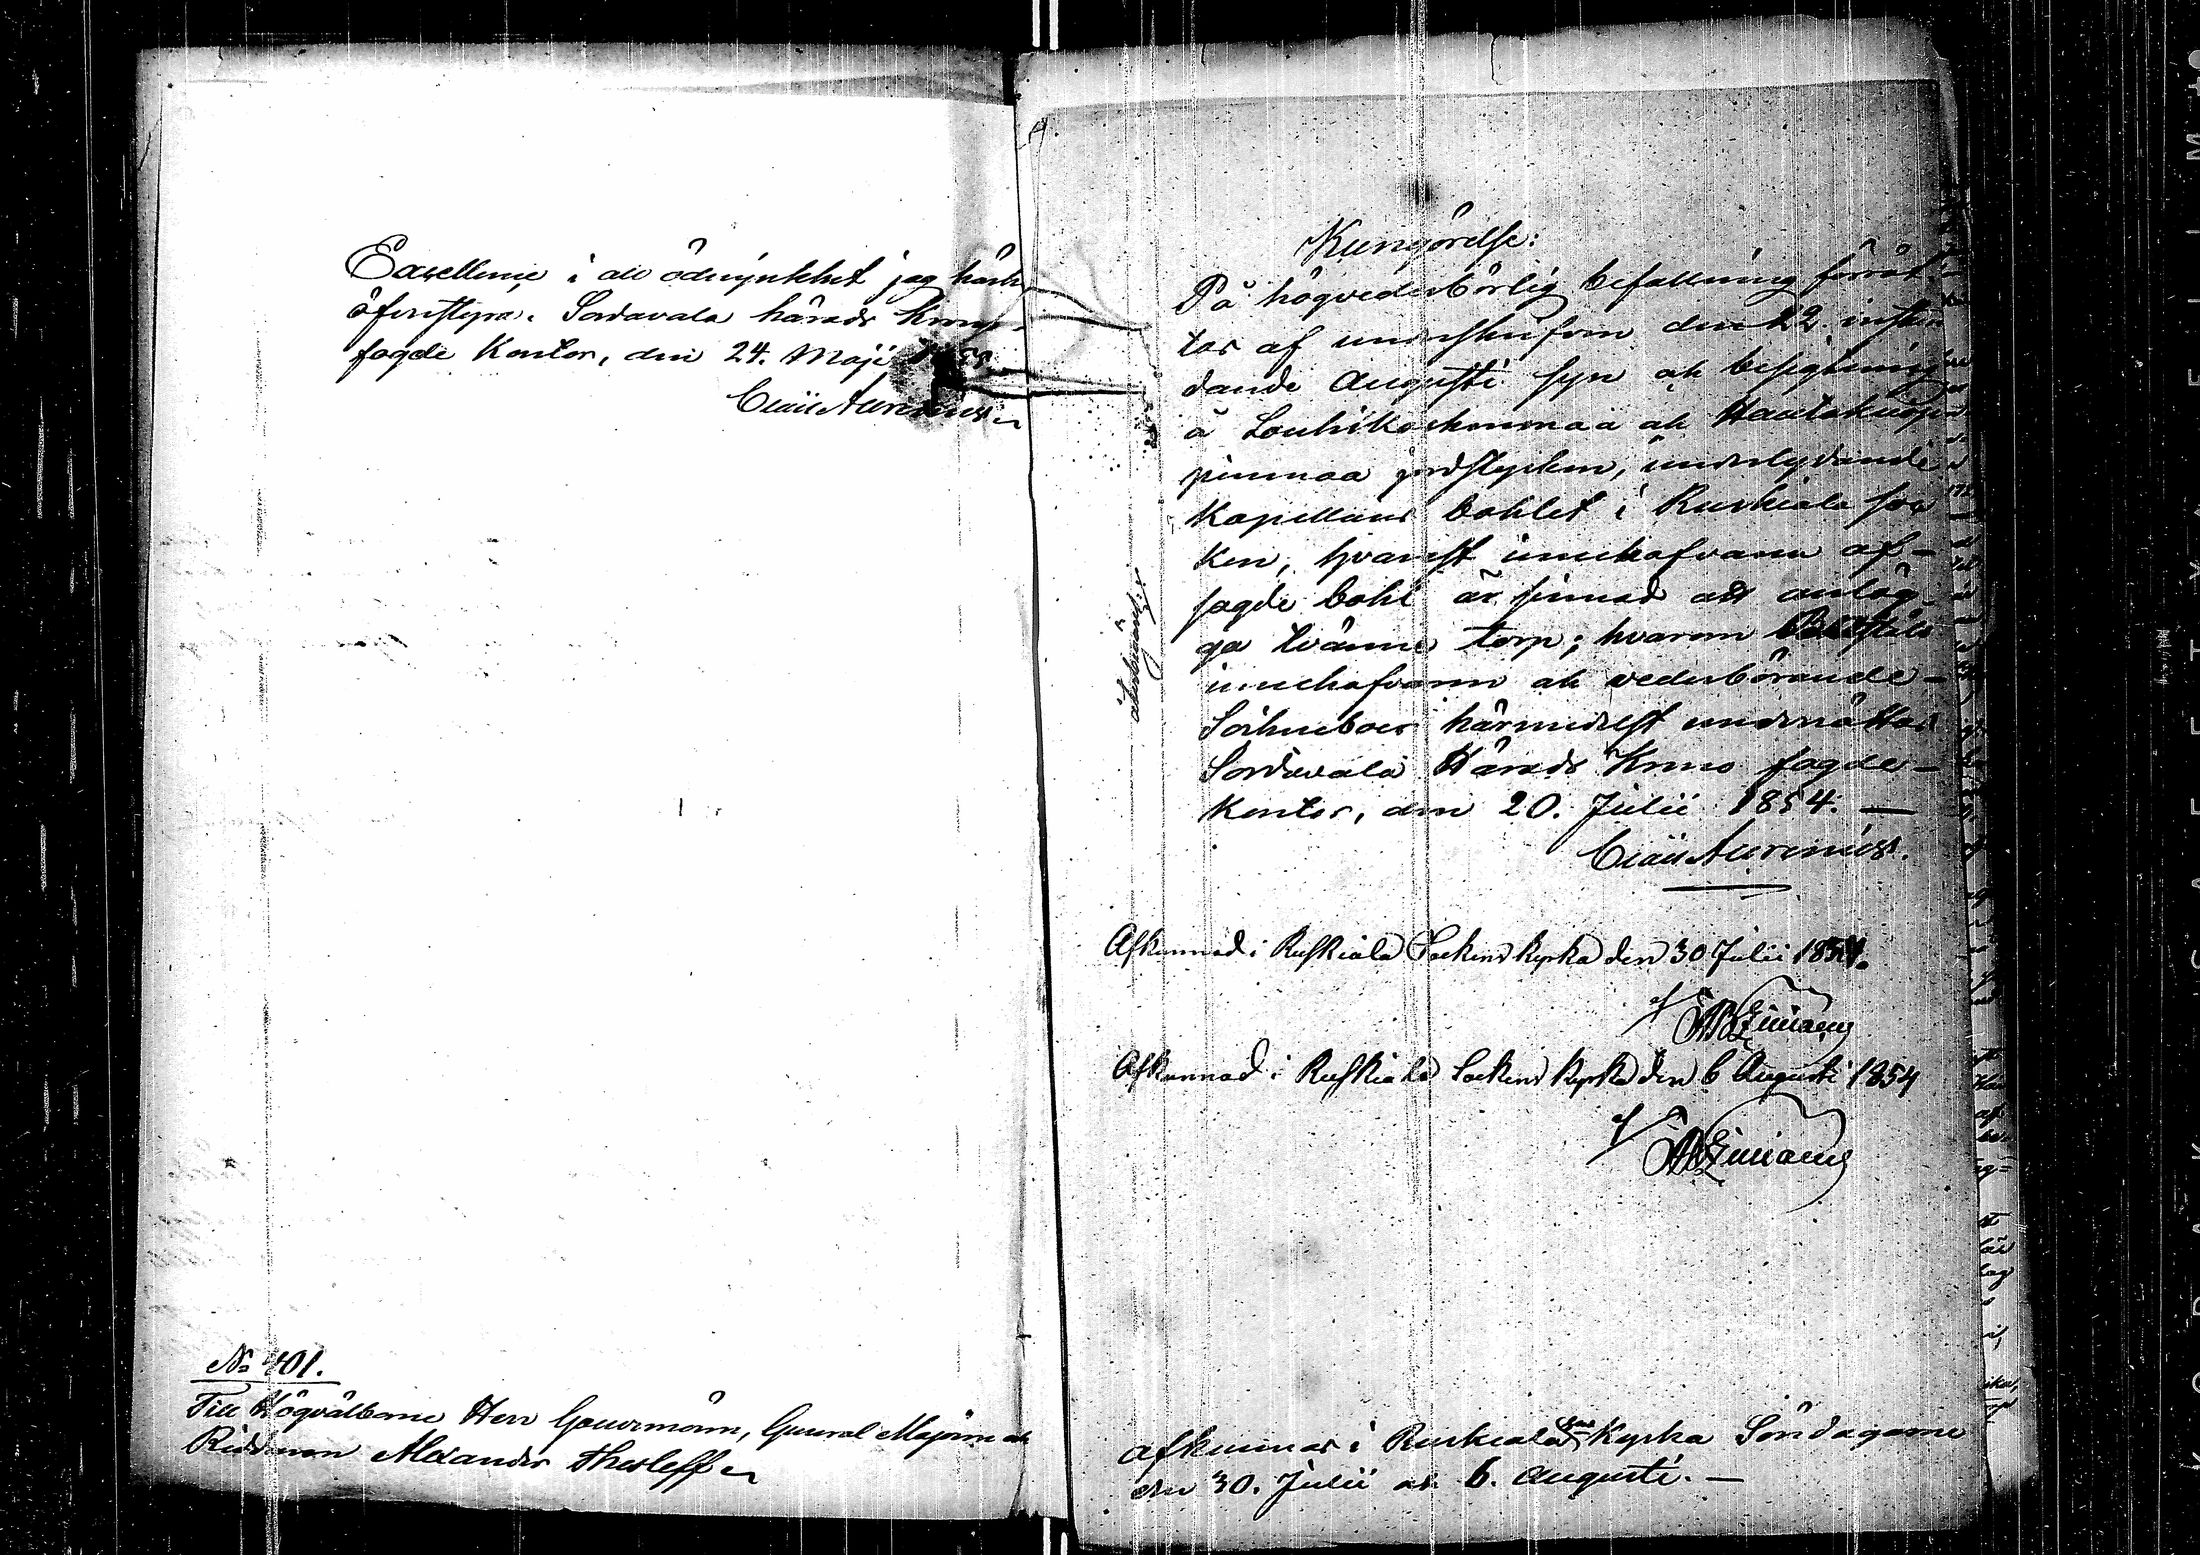 Excellence i all ödmjukhet jag härh.
öfverstyra. Sordavala härads Krono-
fogde Kontor, den 24. Maji
Claës Aurenius
No 401.
Till Högvälborne Herr Gouvernören, General Majoren och
Riddaren Alexander Thesleff
Kungörelse:
På högvederbörlig befallning förrät-
tas af undershrifven den 22. instun-
dande Augusti syn och besigtning
å Louhikorkenmaa och Hautakuopan
pinmaa jordstycken, underlydande
Kapellans bohlet i Ruskiala soc
ken, hvarest innehafvaren af-
sagde bohl är sinnad att anläg-
ga tvänne torp; hvarom Boställs
innehafvaren och vederbörande-
Sockneboer härmedelst underrättas
Sordavala Härads Krono fogde-
Kontor, den 20. Julii 1854. —
Claës Aurenius.
återbegäras.
Afkunnad i Ruskiala Sockens kyrka den 30 Julii 1854.
Afkunnad i Ruskiala Sockens kyrka den 6 Augusti 1854
Afkunnas i Ruskiala Kyrka Söndagarne
den 30. Julii och 6. Augusti. —